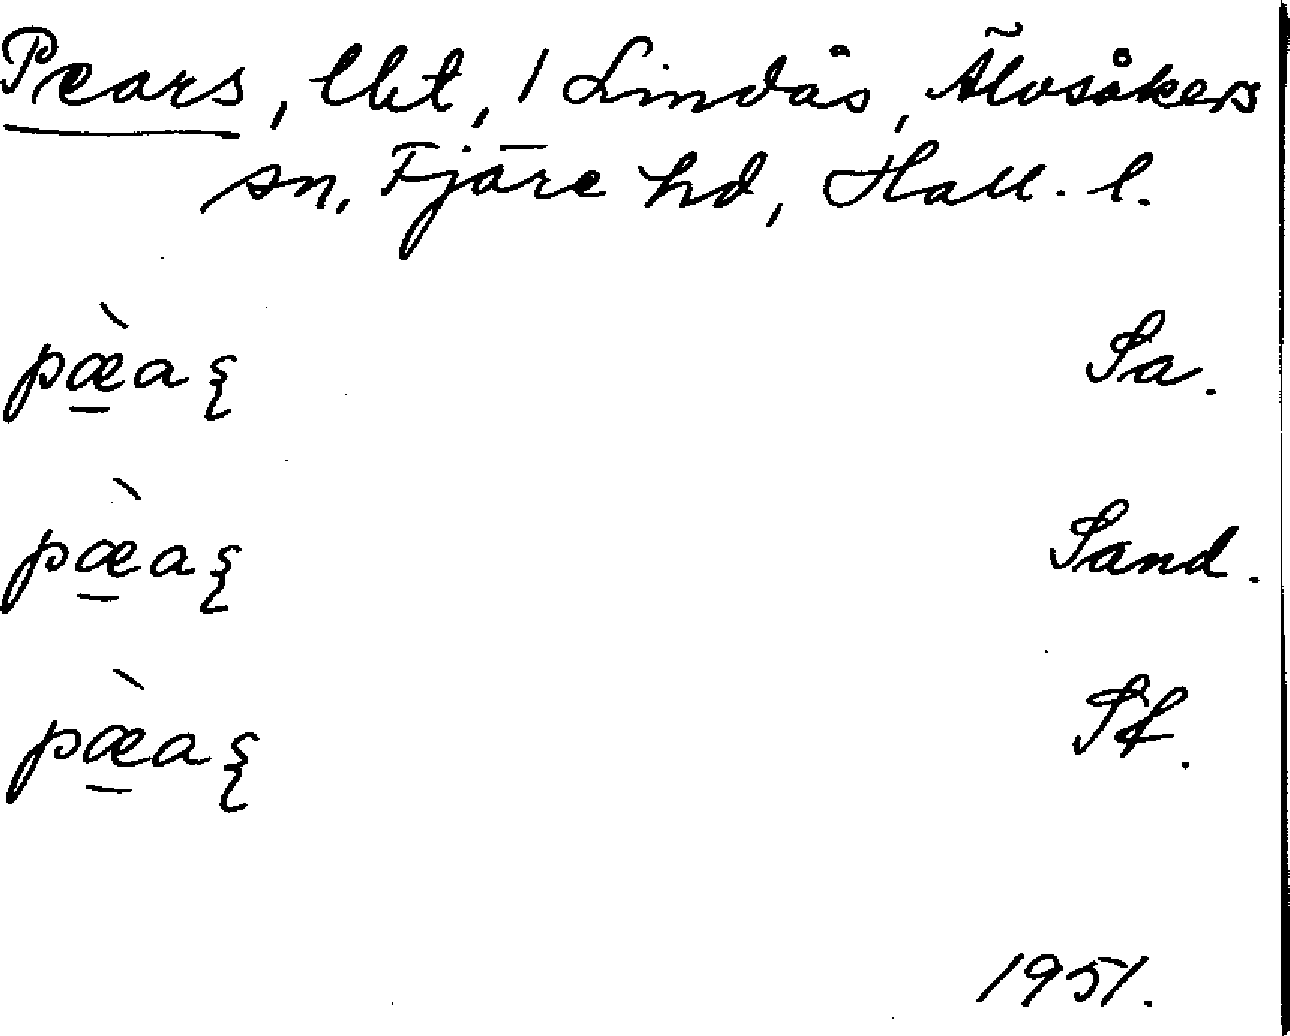 Pears, lht, 1 Lindås, Älvsåkers
sn, Fjäre hd, Hall. l.
pæ̠̀aʂ Sa.
pæ̠̀aʂ Sand.
pæ̠̀aʂ Sf.
1951.